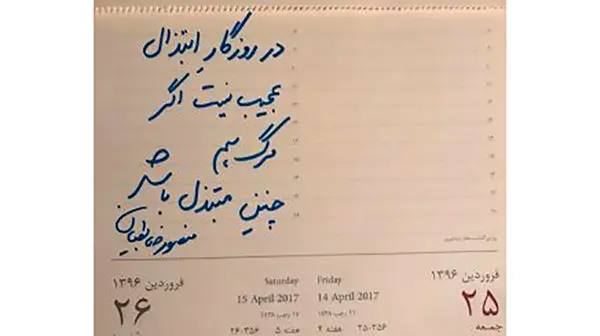 در روزگارِ ابتذال
عجیب نیست اگر
مرگ هم
چنین مبتذل باشد
منصور ضابطیان
فروردین ۱۳۹۶
۲۶
Saturday
15 April 2017
۱۷ رجب ۱۴۳۸
۲۶-۳۵۶
هفته ۵
Friday
14 April 2017
۱۶ رجب ۱۴۳۸
۲۵-۳۵۶
هفته ۴
فروردین ۱۳۹۶
۲۵
جمعه